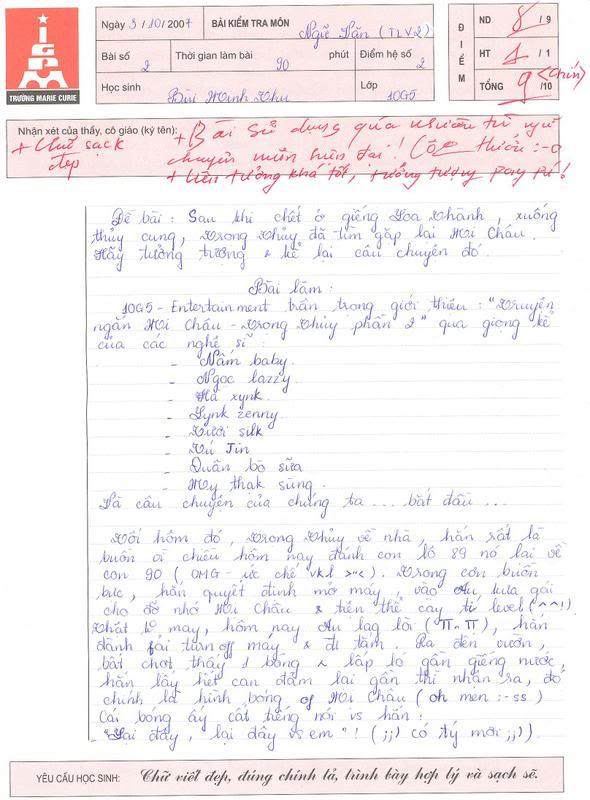 Ngày 3/10/2007
BÀI KIỂM TRA MÔN Ngữ Văn (TLV2)
Bài số 2
Thời gian làm bài 90 phút
Điểm hệ số 2
Học sinh Bùi Minh Thu
Lớp 10G5
ĐIỂM
ND 8 / 9
HT 1 / 1
TỔNG 9 (chín) /10
IGPM
TRƯỜNG MARIE CURIE
Nhận xét của thầy, cô giáo (ký tên):
+ Chữ sạch đẹp
+ Bài sử dụng quá nhiều từ ngữ
chuyên môn hiện đại! (Có thiếu :-o
+ Liên tưởng khá tốt, tưởng tượng pay pú!
Đề bài : Sau khi chết ở giếng Loa Thành, xuống
thủy cung, Trọng Thủy đã tìm gặp lại Mị Châu.
Hãy tưởng tượng & kể lại câu chuyện đó.
Bài làm:
10G5 - Entertainment trân trọng giới thiệu : "Truyện
ngắn Mị Châu - Trọng Thủy phần 2" qua giọng kể
của các nghệ sĩ :
- Nấm baby.
- Ngọc lazzy.
- Hà xynk.
- Lynk zenny.
- Tươi silk
- Tú Jin
- Quân bò sữa
- My thak sùng.
Và câu chuyện của chúng ta ... bắt đầu ...
Tối hôm đó, Trọng Thủy về nhà, hắn rất là
buồn vì chiều hôm nay đánh con lô 89 nó lại về
con 90 (OMG - ức chế vkl >"<). Trong cơn buồn
bực, hắn quyết định mở máy, vào Au lừa gái
cho đỡ nhớ Mị Châu & tiện thể cày tí level (^^!).
Nhát lê máy, hôm nay Au lag lòi (π.π), hắn
đành fải turn off máy & đi tắm. Ra đến vườn,
bất chợt thấy 1 bóng ~ lấp ló gần giếng nước,
hắn lấy hết can đảm lại gần thì nhận ra, đó
chính là hình bóng of Mị Châu (oh men :-ss)
Cái bóng ấy cất tiếng nói vs hắn:
"Lại đây, lại đây vs em"! (;;) có tý mời ;;)).
YÊU CẦU HỌC SINH: Chữ viết đẹp, đúng chính tả, trình bày hợp lý và sạch sẽ.